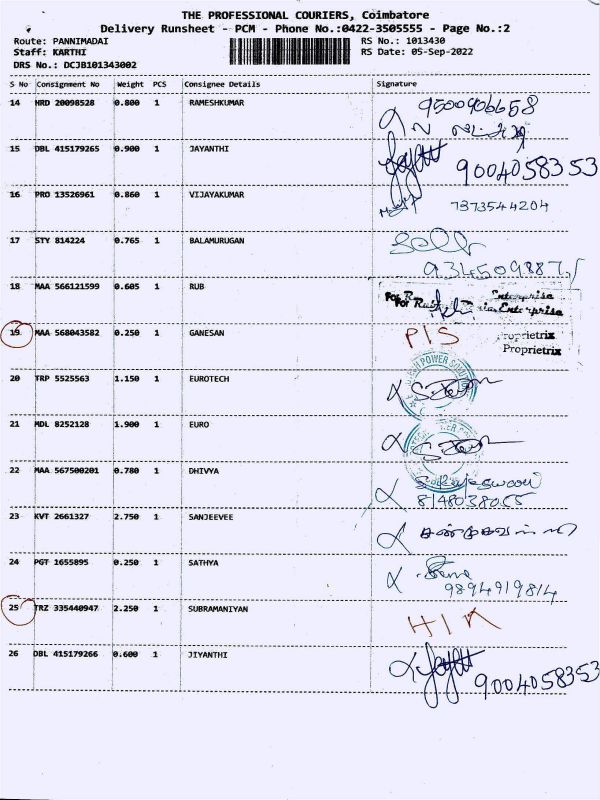 THE PROFESSIONAL COURIERS, Coimbatore
Delivery Runsheet - PCM - Phone No.:0422-3505555 - Page No.:2
Route: PANNIMADAI RS No.: 1013430
Staff: KARTHI RS Date: 05-Sep-2022
DRS No.: DCJB101343002
S No Consignment No Weight PCS Consignee Details Signature
14 HRD 20098528 0.800 1 RAMESHKUMAR 9500906658
15 DBL 415179265 0.900 1 JAYANTHI 9004058353
16 PRO 13526961 0.860 1 VIJAYAKUMAR 7373544204
17 STY 814224 0.765 1 BALAMURUGAN
18 MAA 566121599 0.605 1 RUB
Enterprise
For Enterprise
19 MAA 568043582 0.250 1 GANESAN P/S
Proprietrix
Proprietrix
20 TRP 5525563 1.150 1 EUROTECH
POWER
21 MDL 8252128 1.900 1 EURO
22 MAA 567500201 0.780 1 DHIVYA
8148038055
23 KVT 2661327 2.750 1 SANJEEVEE
24 PGT 1655895 0.250 1 SATHYA
9894919814
25 TRZ 335440947 2.250 1 SUBRAMANIYAN
26 DBL 415179266 0.600 1 JIYANTHI 9004058353